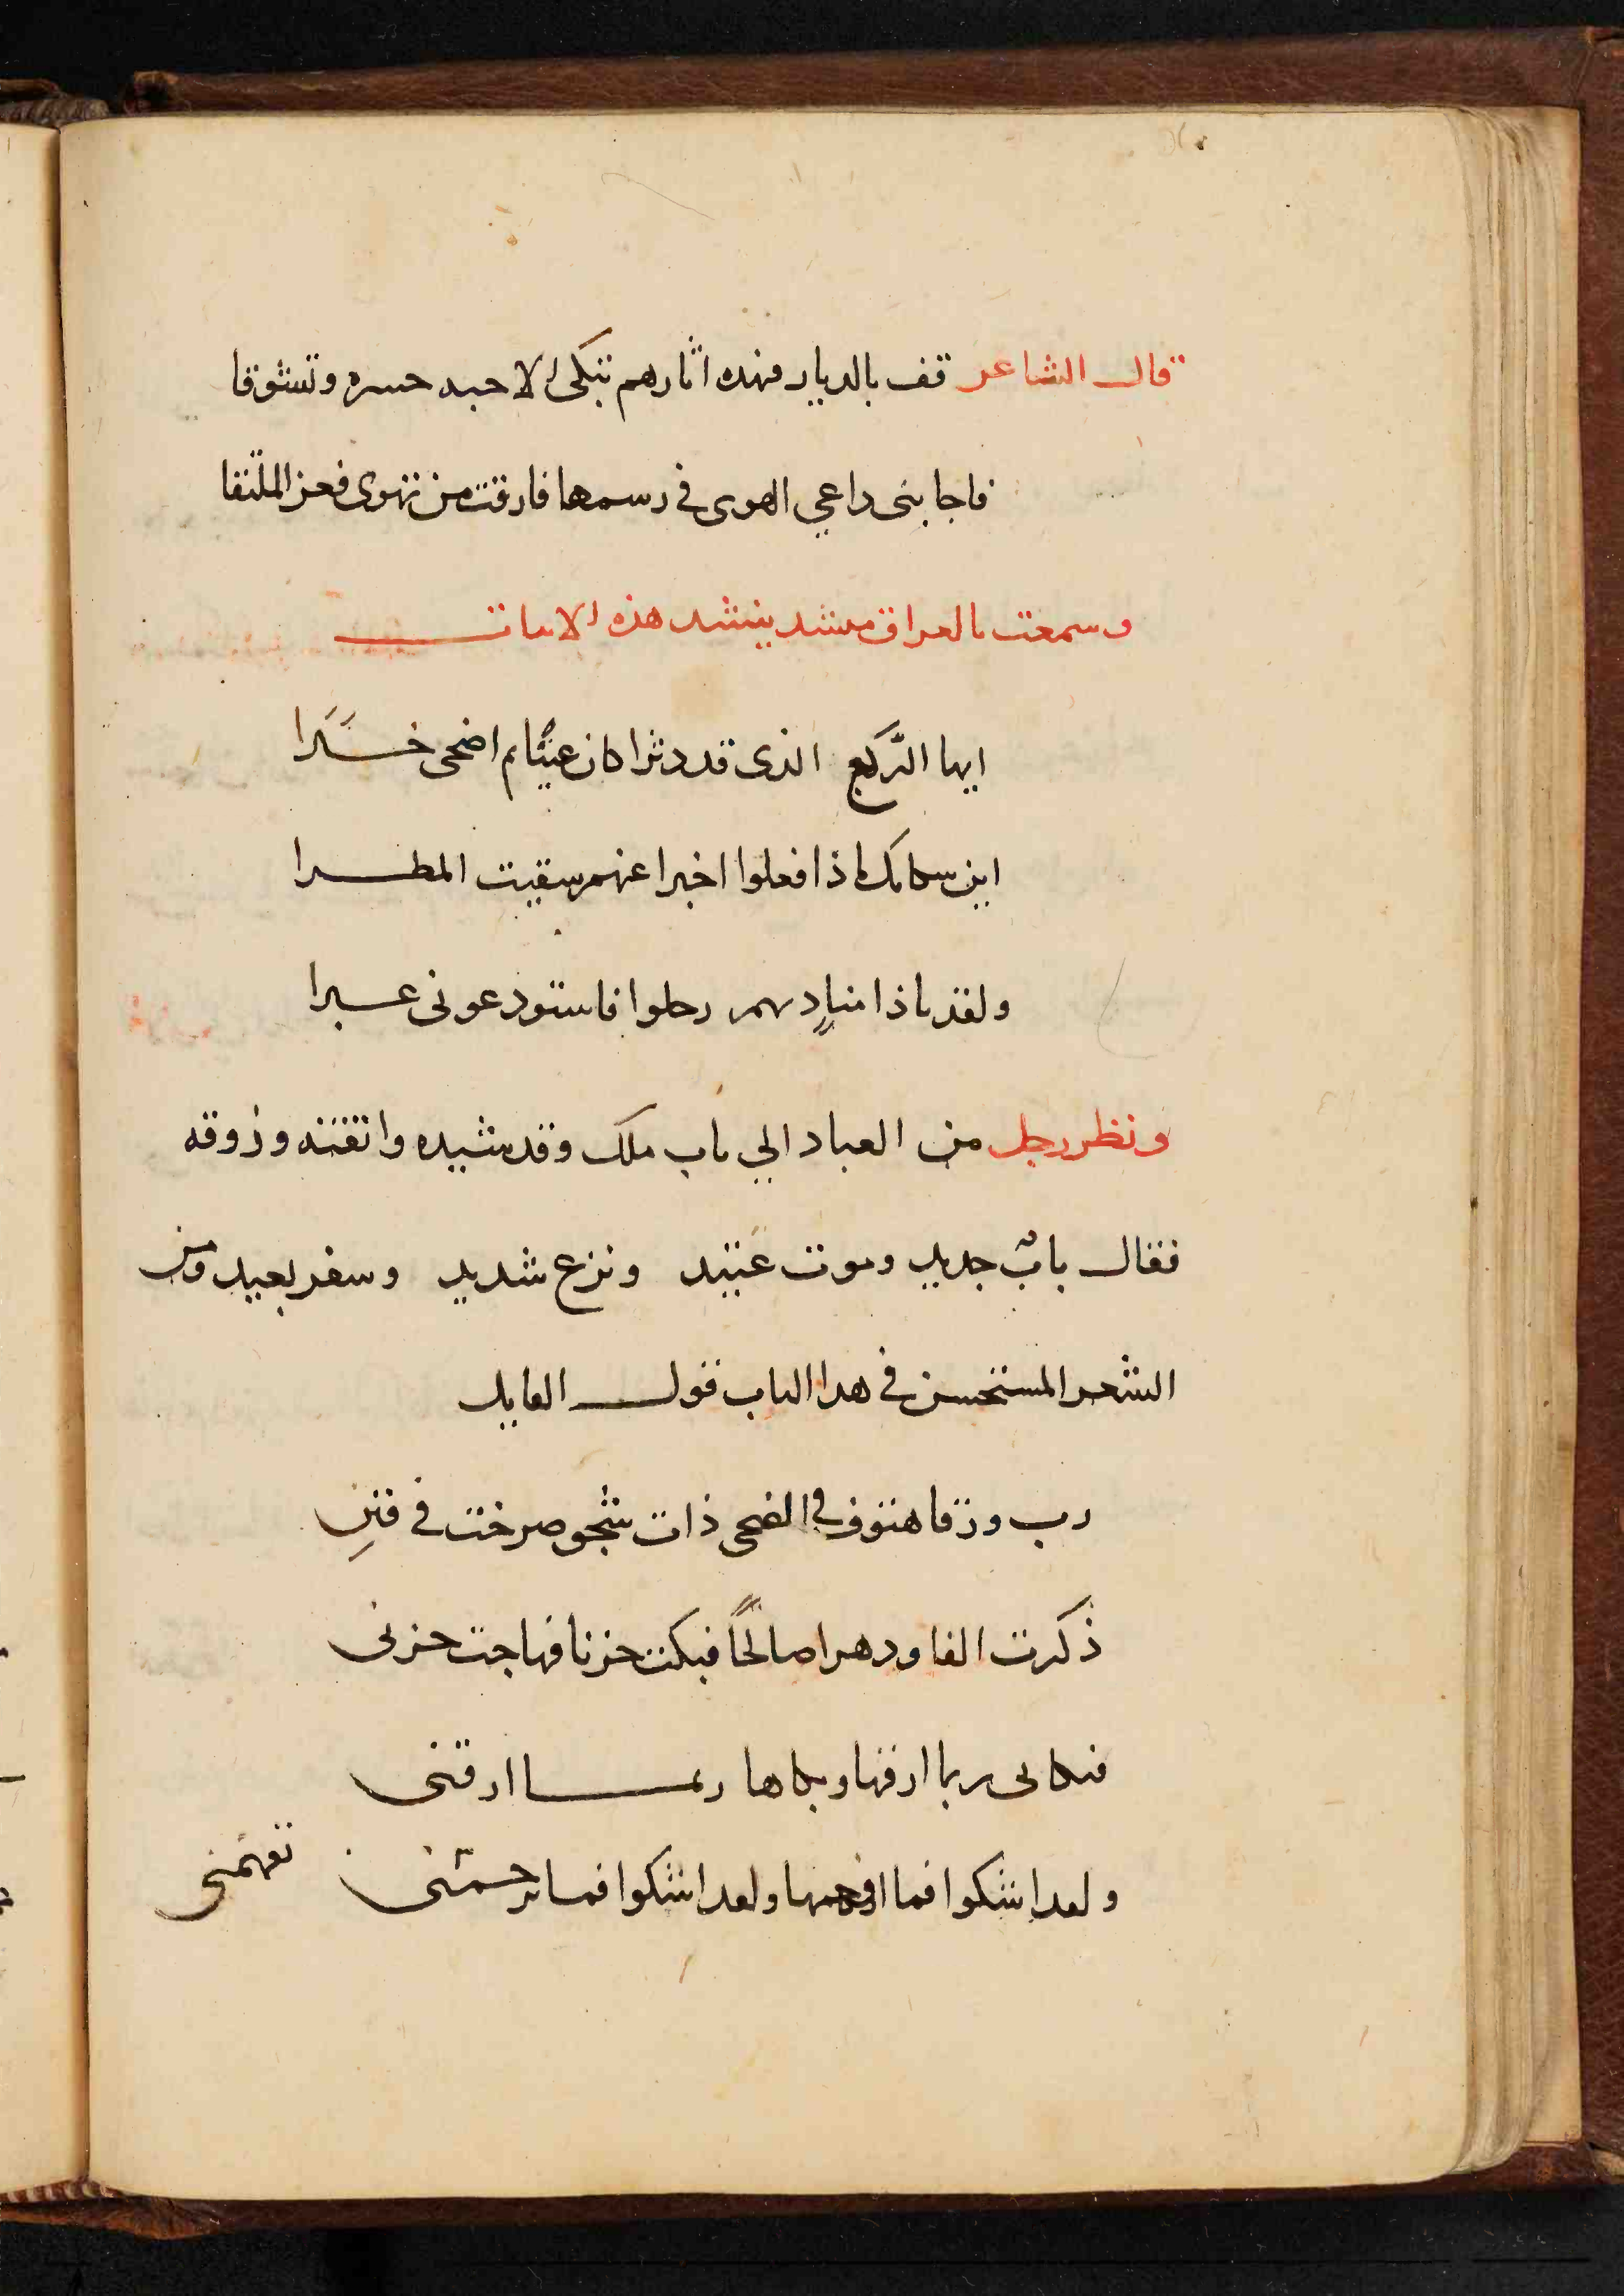 قال الشاعر قف بالديار فهذه اثارهم تبكى الاحبه حسره وتشوقا
فاجابنى داعي الهوى في رسمها فارقت من تهوى فعز الملتقا
وسمعت بالعراق منشد ينشد هذه الابيات
ايها الربع الذى قد دثرا كان عينًا ثم اضحى خبرا
اين سكانك ماذا فعلوا اخبرا عنهم سقيت المطرا
ولقد ناذا منادٍ بهم رحلوا فاستودعونى عبرا
ونظر رجل من العباد الي باب ملك وقد شيده واتقنه وزوقه
فقال بابٌ جديد وموت عتيد ونزع شديد وسفر بعيد ومن
الشعر المستحسن في هذا الباب قول القايل
رب ورقا هتوف في الضحى ذات شجو صرخت في فننِ
ذكرت الفا ودهرا صالحًا فبكت حزنا فهاجت حزنى
فبكائى ربما ارقها وبكاها ربما ارقنى
ولقد اشكوا فما افهمها ولقد اشكوا فما ترحمنى تفهمنى